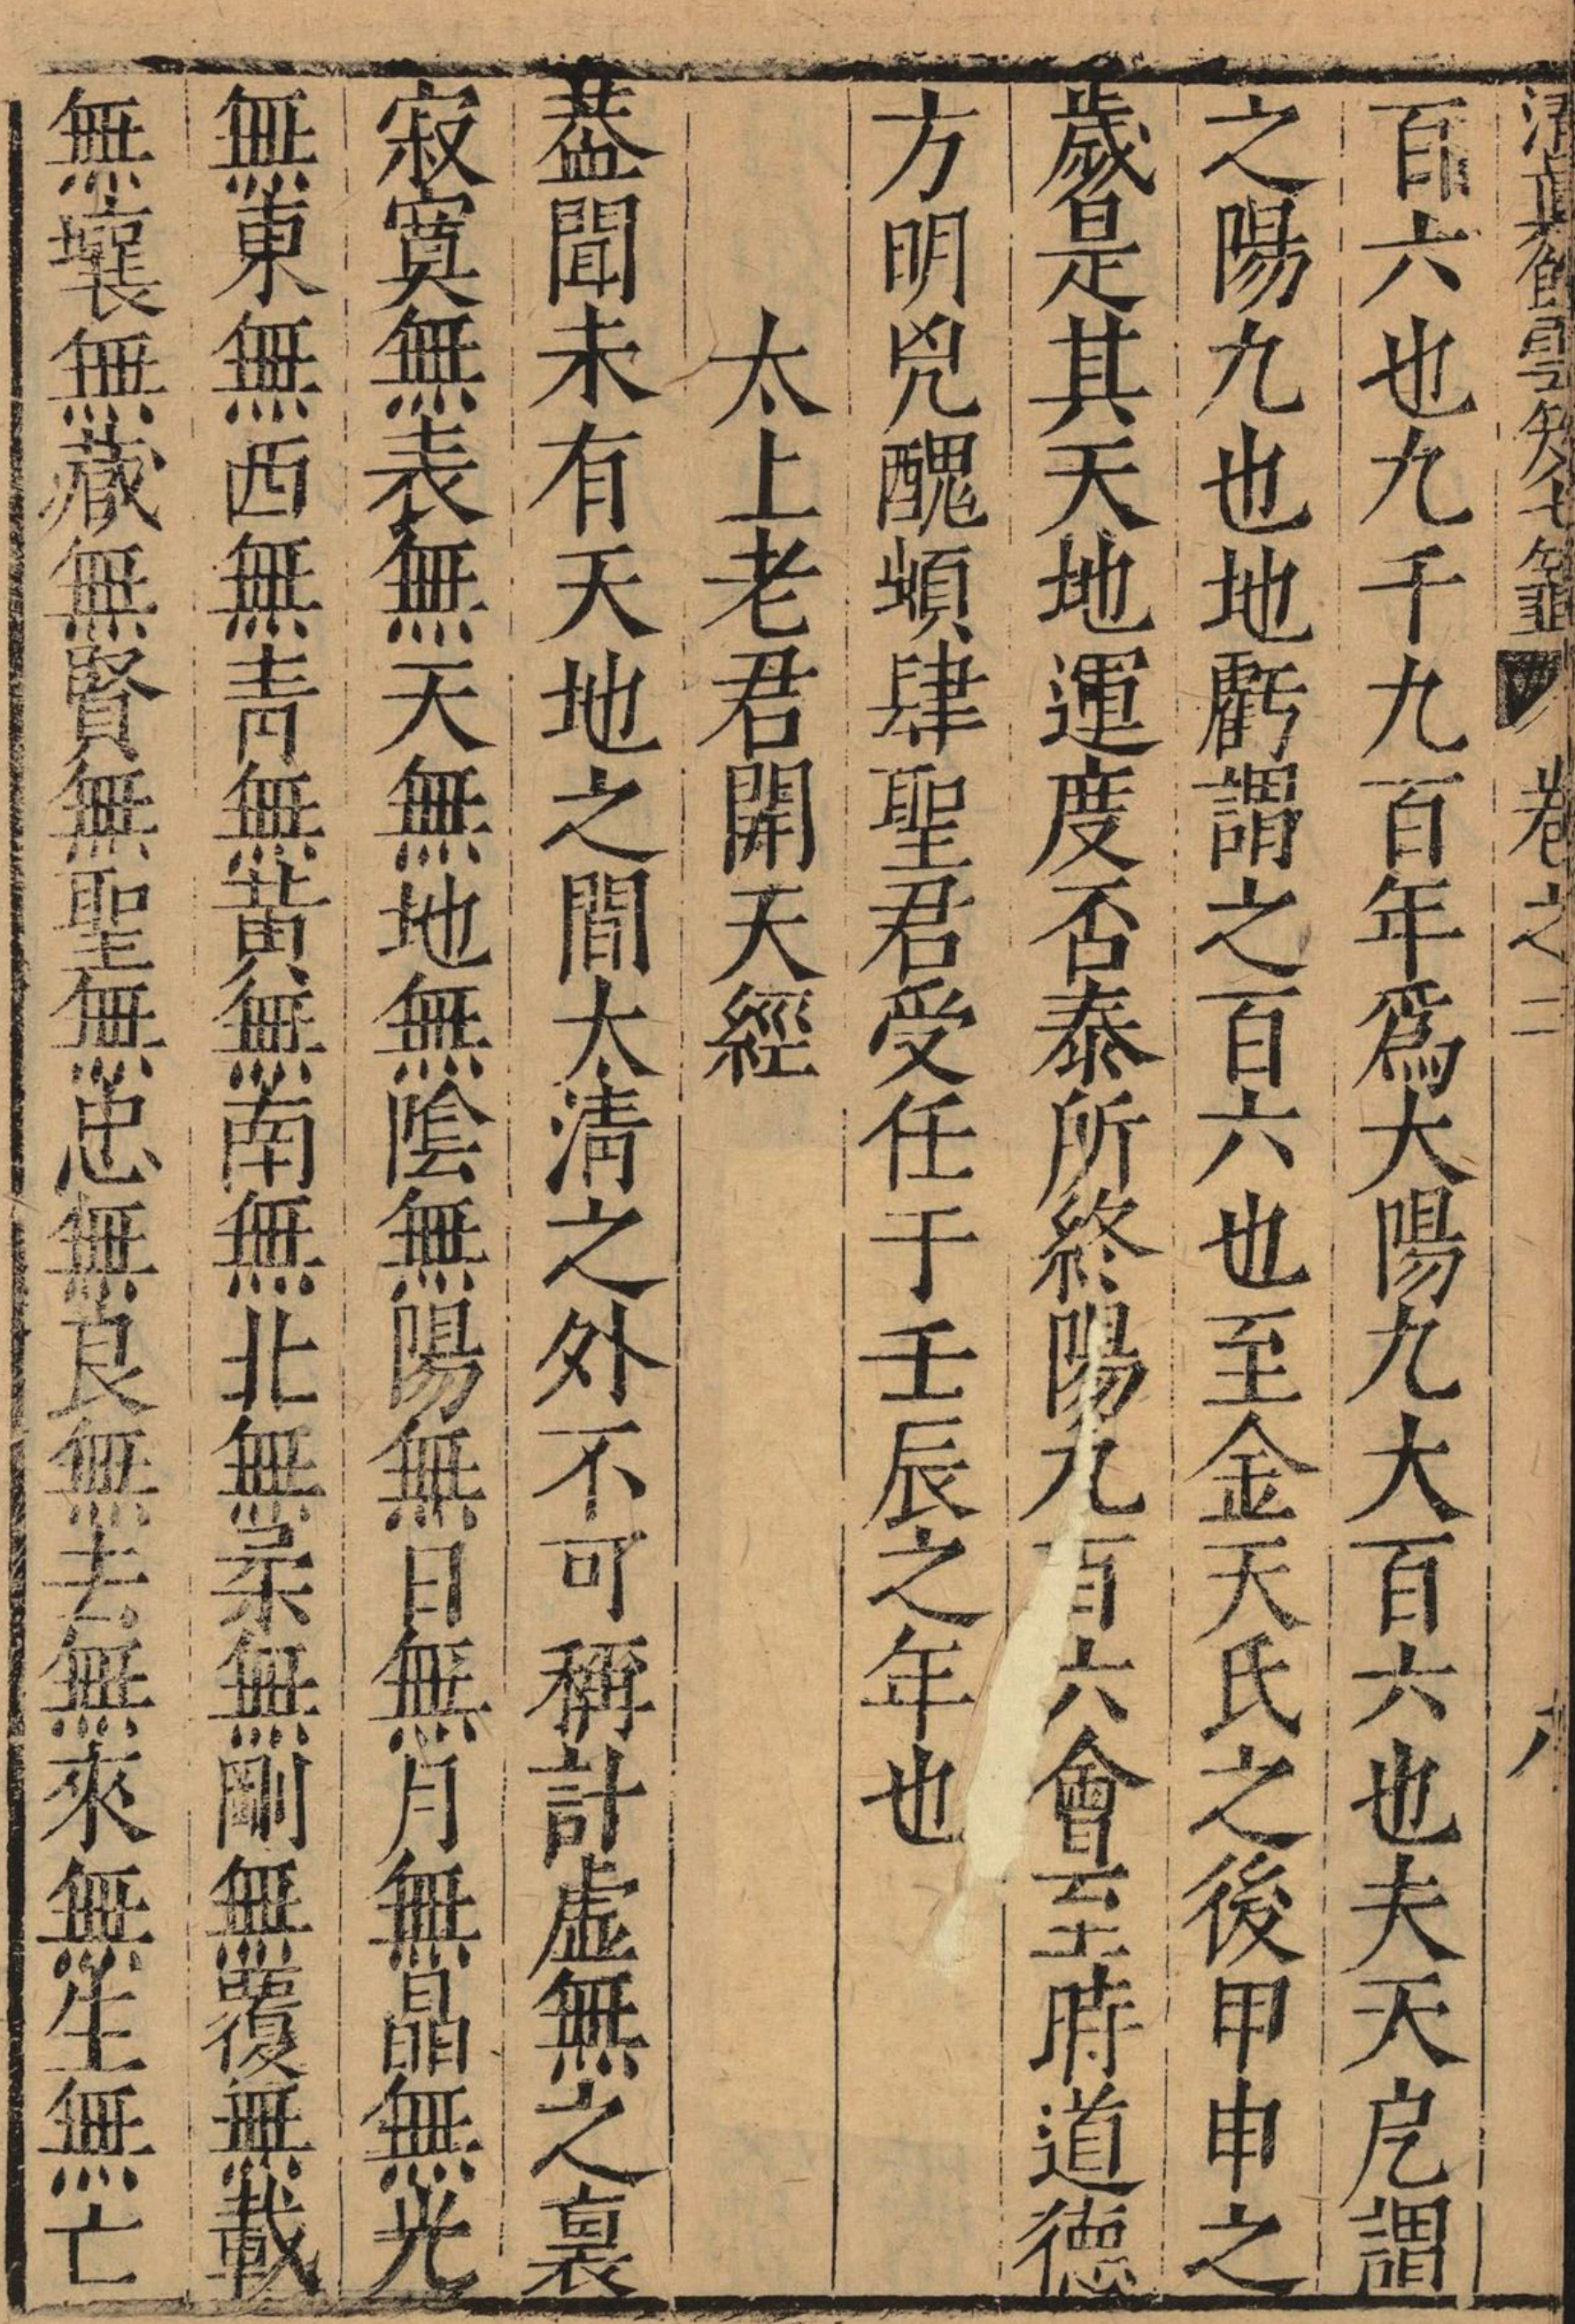 百六也九千九百年爲大陽九大百六也夫天戹謂
之陽九也地虧謂之百六也至金天氏之後甲申之
歲是其天地運度否泰所終陽九百六會至時道德
方明兇醜頓肆聖君受任于壬辰之年也
太上老君開天經
葢聞未有天地之間太清之外不可稱計虛無之裏
寂寞無表無天無地無陰無陽無日無月無晶無光
無東無西無青無黃無南無北無柔無剛無覆無載
無壞無藏無賢無聖無忠無良無去無來無生無亡
卷之二
八